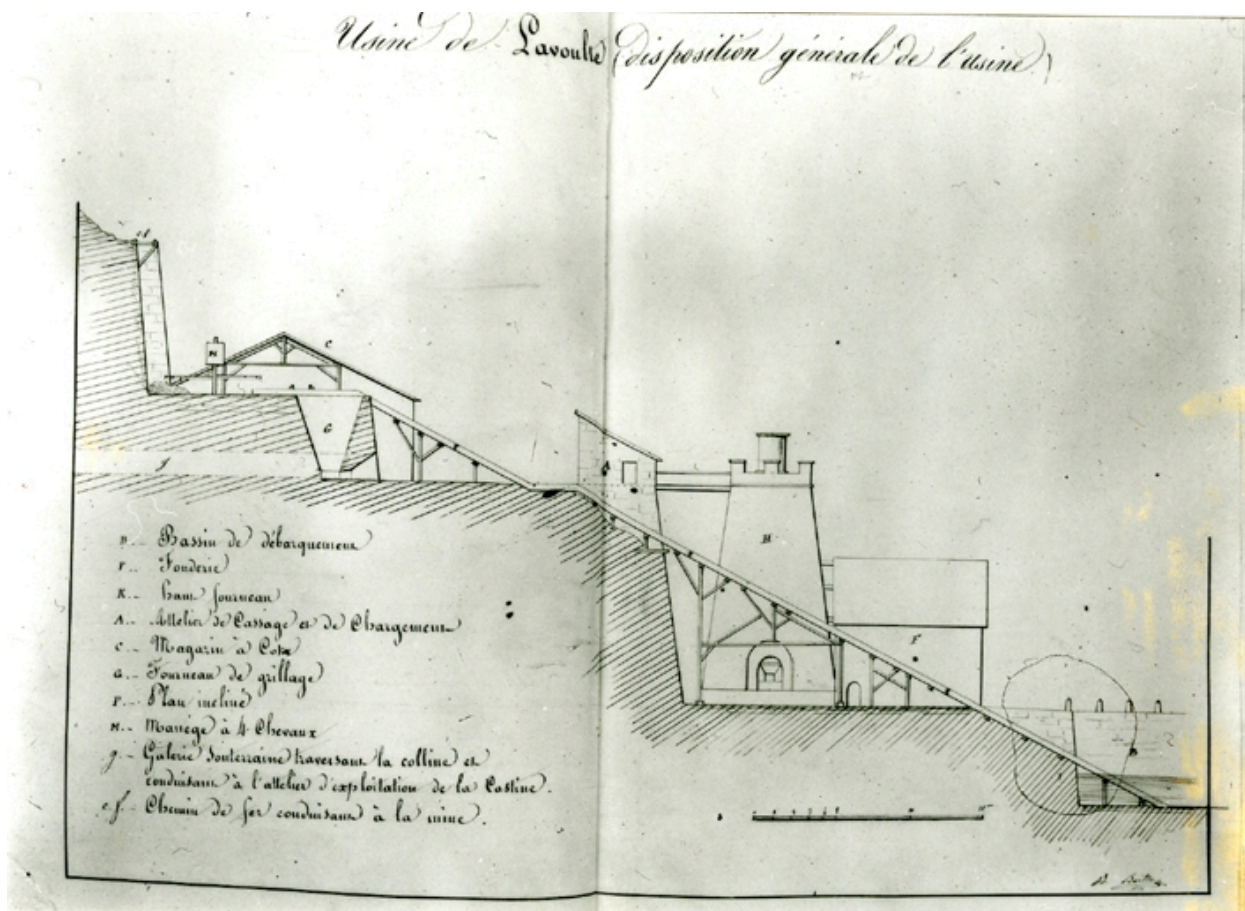 Usine de Lavoulte (disposition générale de l'usine)
B.. Bassin de débarquement
F.. Fonderie
K.. haut fourneau
A.. Attelier de Cassage et de Chargement
C.. Magazin à Coke
G.. Fourneau de grillage
P.. Plan incliné
M.. Manège à 4 Chevaux
g.. Galerie Souterraine traversant la colline et
conduisant à l'attelier d'exploitation de la Castine.
c.f.. Chemin de fer conduisant à la mine.
M
C
G
g
A
H
F
B